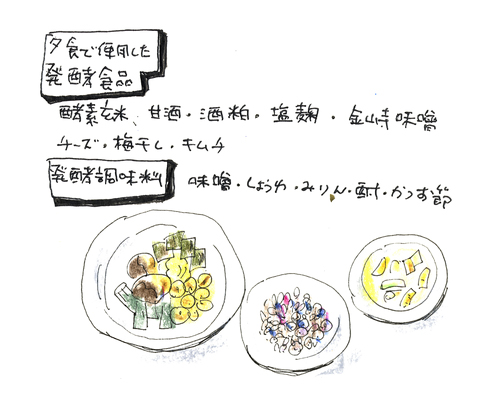 夕食で使用した
発酵食品
酵素玄米、甘酒・酒粕・塩麹・金山寺味噌
チーズ・梅干し・キムチ
発酵調味料
味噌・しょうゆ・みりん・酢・かつお節